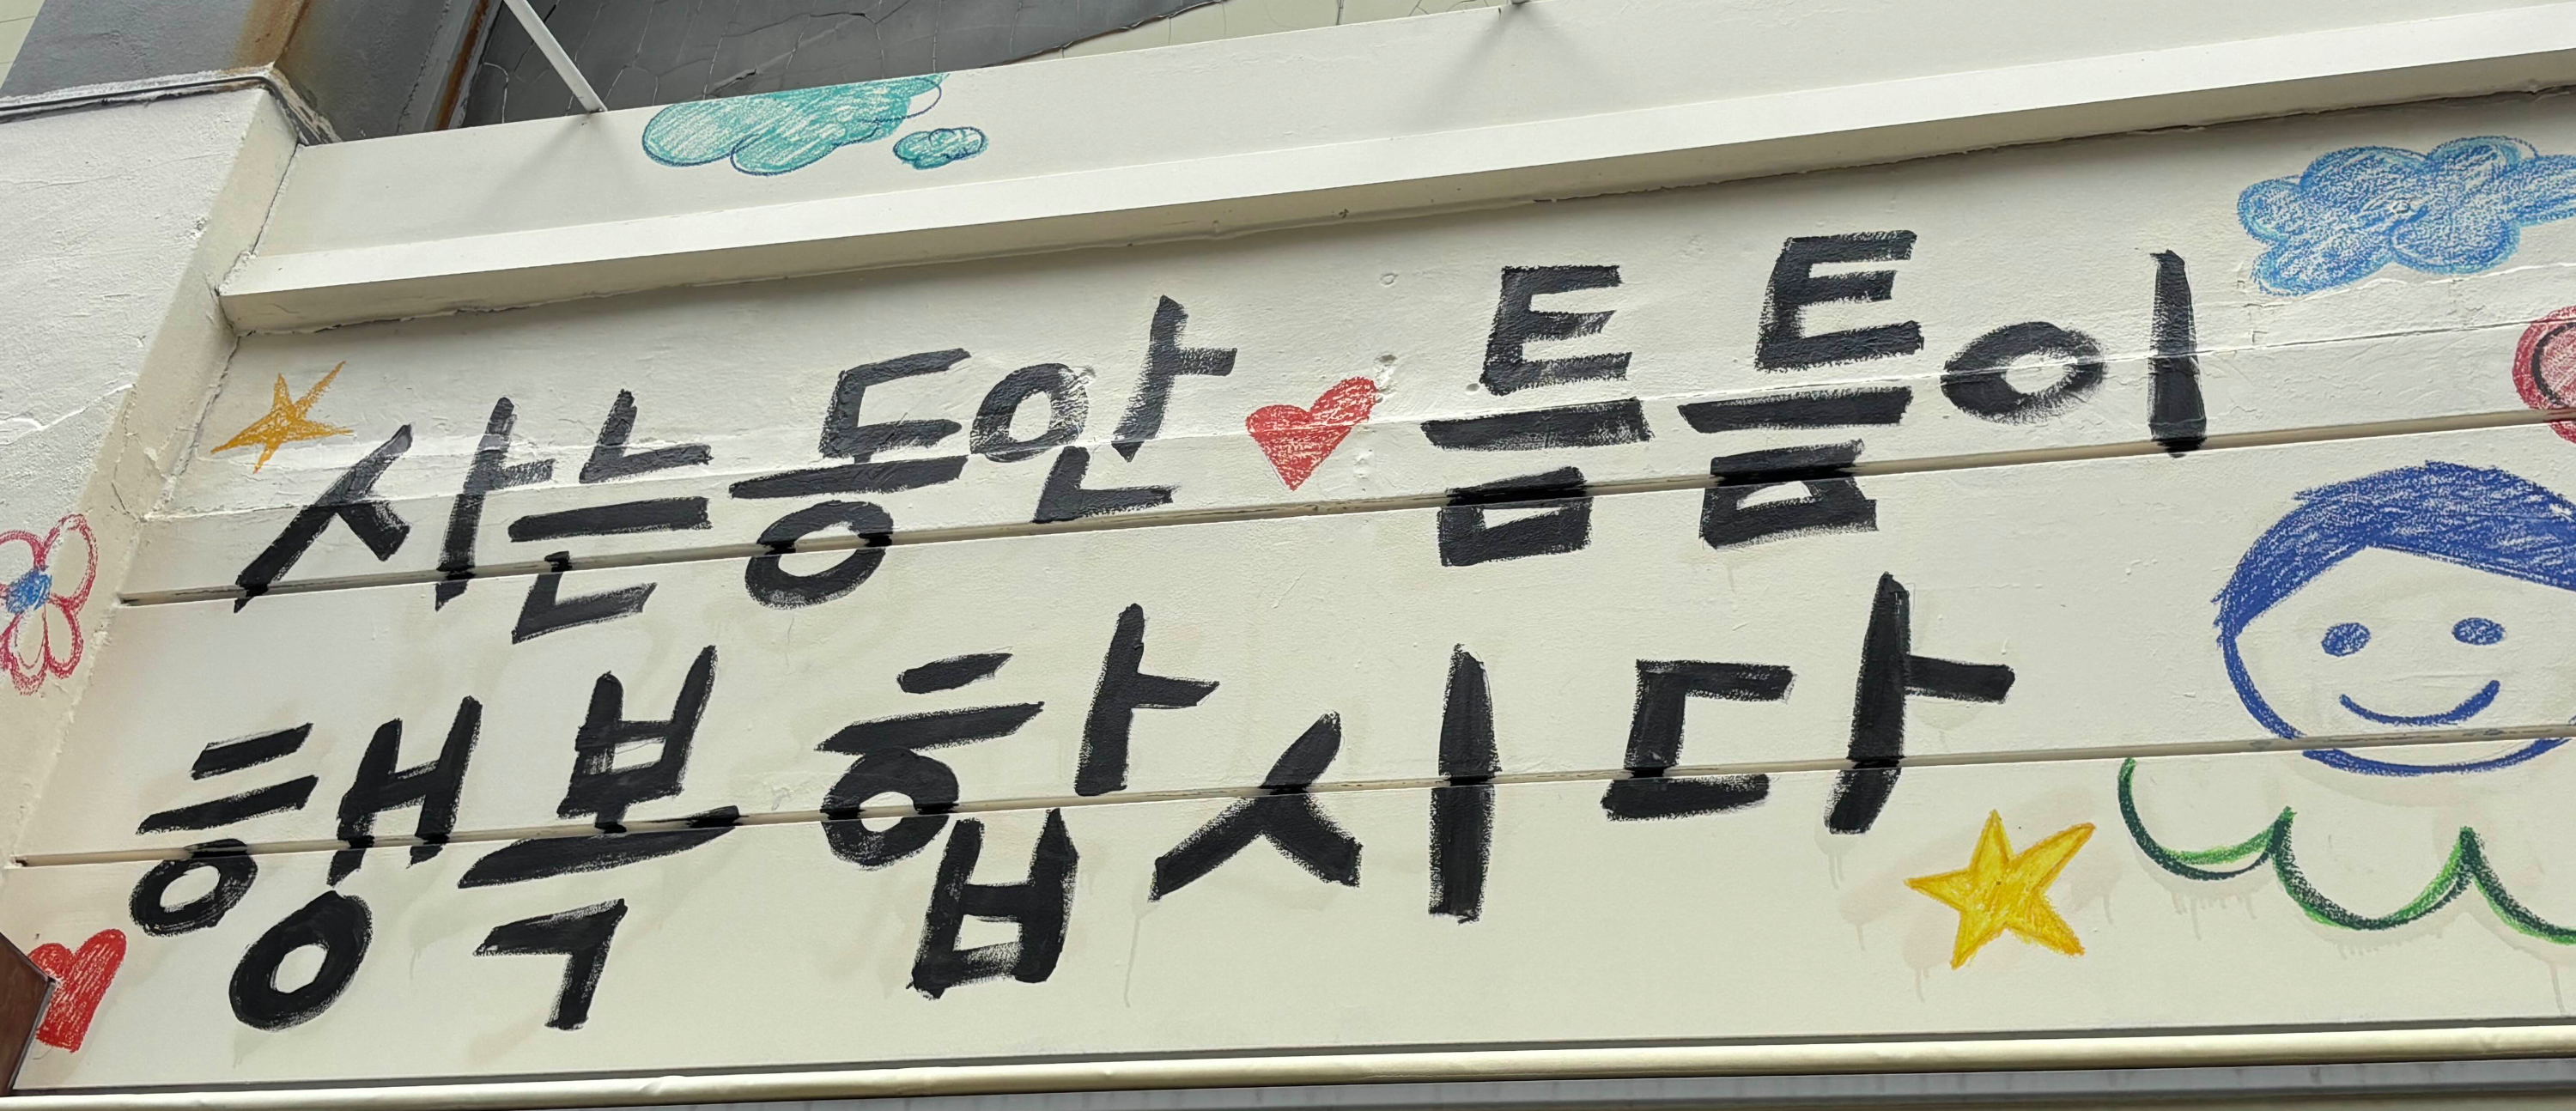 사는동안 틈틈이
행복합시다